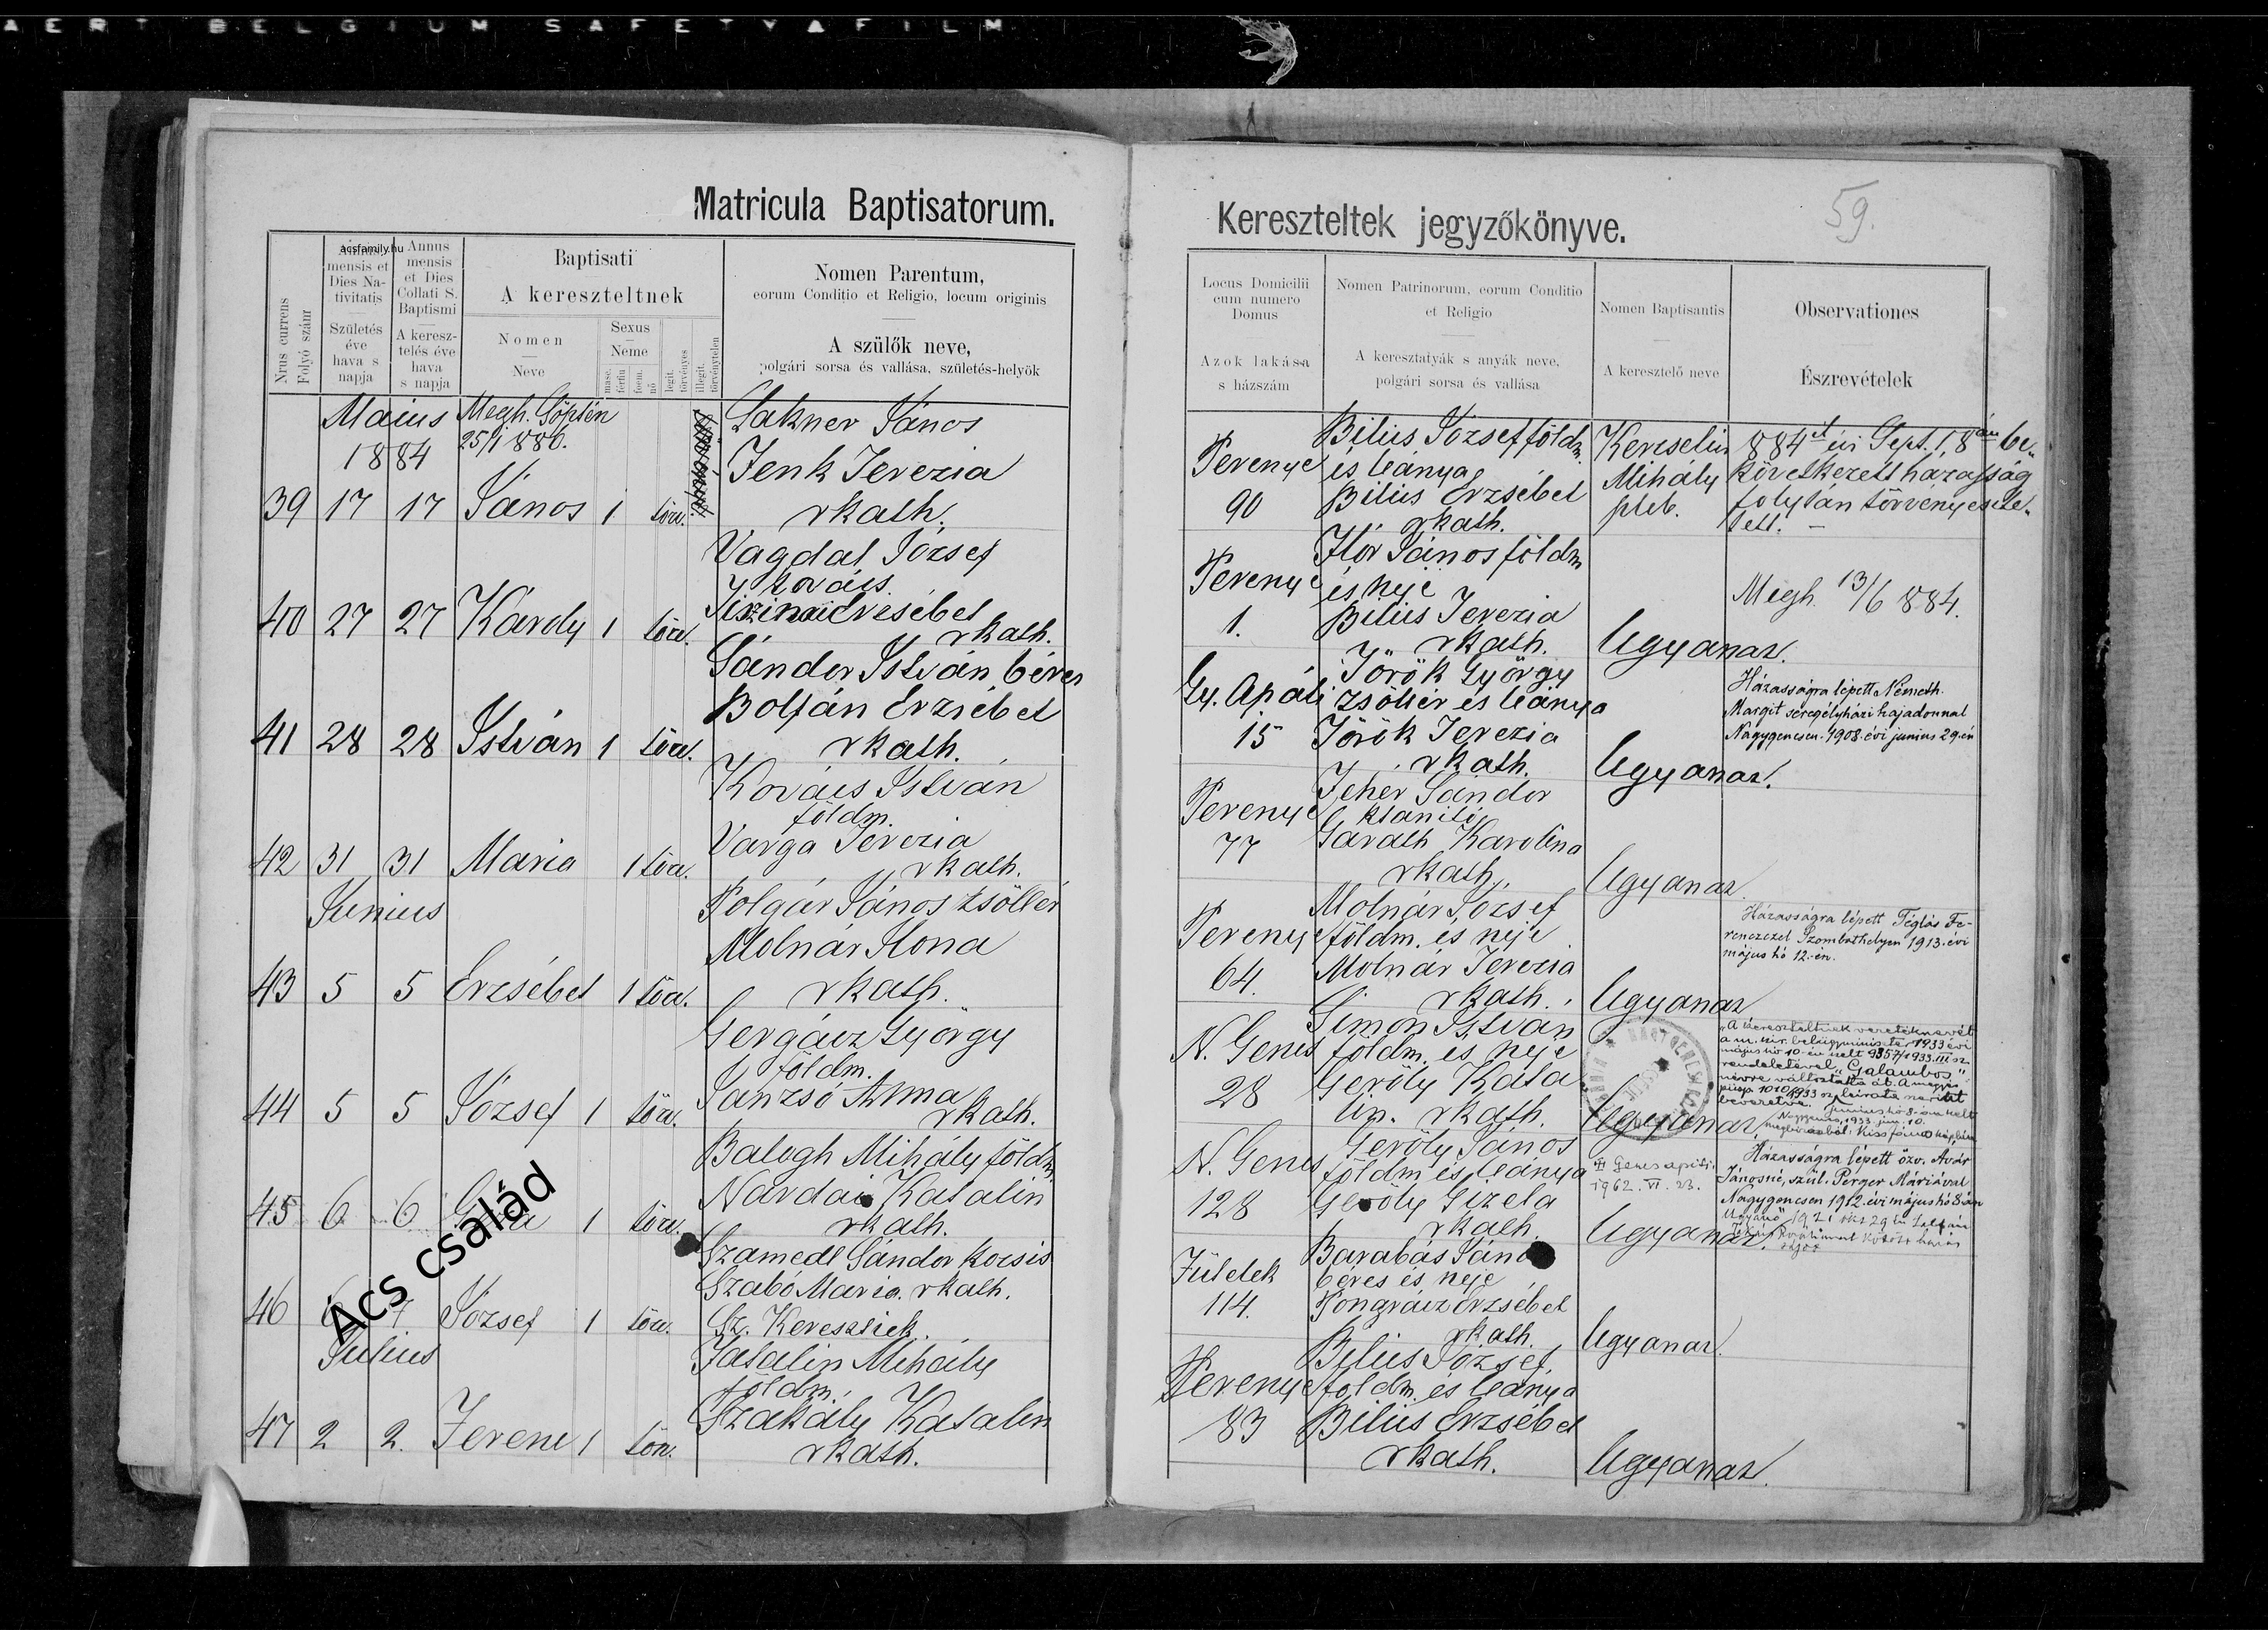 AERT BELGIUM SAFETY A FILM
Matricula Baptisatorum.
Nrus currens
Folyó szám
acsfamily.hu
mensis et
Dies Na-
tivitatis
Születés
éve
hava s
napja
Annus
mensis
et Dies
Collati S.
Baptismi
A keresz-
telés éve
hava
s napja
Baptisati
A kereszteltnek
Nomen
Neve
Sexus
Neme
masc.
férfiu
foem.
nő
legit.
törvényes
illegit.
törvénytelen
Nomen Parentum,
eorum Conditio et Religio, locum originis
A szülők neve,
polgári sorsa és vallása, születés-helyök
Maius
1884
Megh. Söptén
25/1 886.
39 17 17 János 1 törv.
Lakner János
Fenk Terezia
rkath.
40 27 27 Károly 1 törv.
Vagdal József
kovács
Erzsébet
rkath.
41 28 28 István 1 törv.
Sándor István béres
Bolfán Erzsébet
rkath.
42 31 31 Maria 1 törv.
Kovács István
földm.
Varga Terezia
rkath.
Junius
43 5 5 Erzsébet 1 törv.
Polgár János zsöllér
Molnár Ilona
rkath.
44 5 5 József 1 törv.
Gergácz György
földm.
Sanzsó Anna
rkath.
45 6 6 1 törv.
Balogh Mihály földm.
Nardai Katalin
rkath.
46 7 József 1 törv.
Szamedl Sándor kocsis
Szabó Maria rkath.
Sz. Kereszték
Julius
47 2 2. Ferenc 1 törv.
Katalin Mihály
földm.
Szakály Katalin
rkath.
Ács család
Kereszteltek jegyzőkönyve.
59.
Locus Domicilii
cum numero
Domus
Azok lakása
s házszám
Nomen Patrinorum, eorum Conditio
et Religio
A keresztatyák s anyák neve,
polgári sorsa és vallása
Nomen Baptisantis
A keresztelő neve
Observationes
Észrevételek
Perenye
90
Bilüs József földm.
és leánya
Bilüs Erzsébet
rkath.
Mihály
pleb.
884 évi Sept. 18án be-
következett házasság
folytán törvényesite-
tett. -
Perenye
1.
Hór János földm
és neje
Bilüs Terezia
rkath.
Ugyanaz.
Megh. 13/6 884.
Gy. Apáti
15
Török György
zsöllér és leánya
Török Terezia
rkath.
Ugyanaz.
Házasságra lépett Németh
Margit seregélyházi hajadonnal
Nagygencsen 1908. évi junius 29-én
Perenye
77
Feher Sándor
ktanitó
Garath Karolina
rkath.
Ugyanaz
Perenye
64.
Molnár József
földm. és neje
Molnár Terezia
rkath.
Ugyanaz
Házasságra lépett Téglás Fe-
renczczel Szombathelyen 1913. évi
május hó 12.-én.
N. Gencs
28
Simon István
földm. és neje
Geröly Kata
rkath.
Ugyanaz
"A kereszteltnek vezetéknevét
a m. kir. belügyminiszter 1933 évi
május hó 10-én kelt 9357/1933. III sz.
rendeletével "Galambos"
névre változtatta át. A megyés
püsp. 1010/1933 sz. leirata szerint
bevezetve.
junius hó 8-án kelt
Nagygencs, 1933. jun. 10.
N. Gencs
128
Geröly János
földm. és leánya
Geröly Gizela
rkath.
Ugyanaz.
1962. VI. 23.
Házasságra lépett özv. Avár
Jánosné, szül. Perger Máriával
Nagygencsen 1912. évi május hó 8-án
Fületek
114.
Barabás János
béres és neje
Pongrácz Erzsébet
rkath.
Ugyanaz.
Perenye
83
Bilüs József
földm. és leánya
Bilüs Erzsébet
rkath.
Ugyanaz.